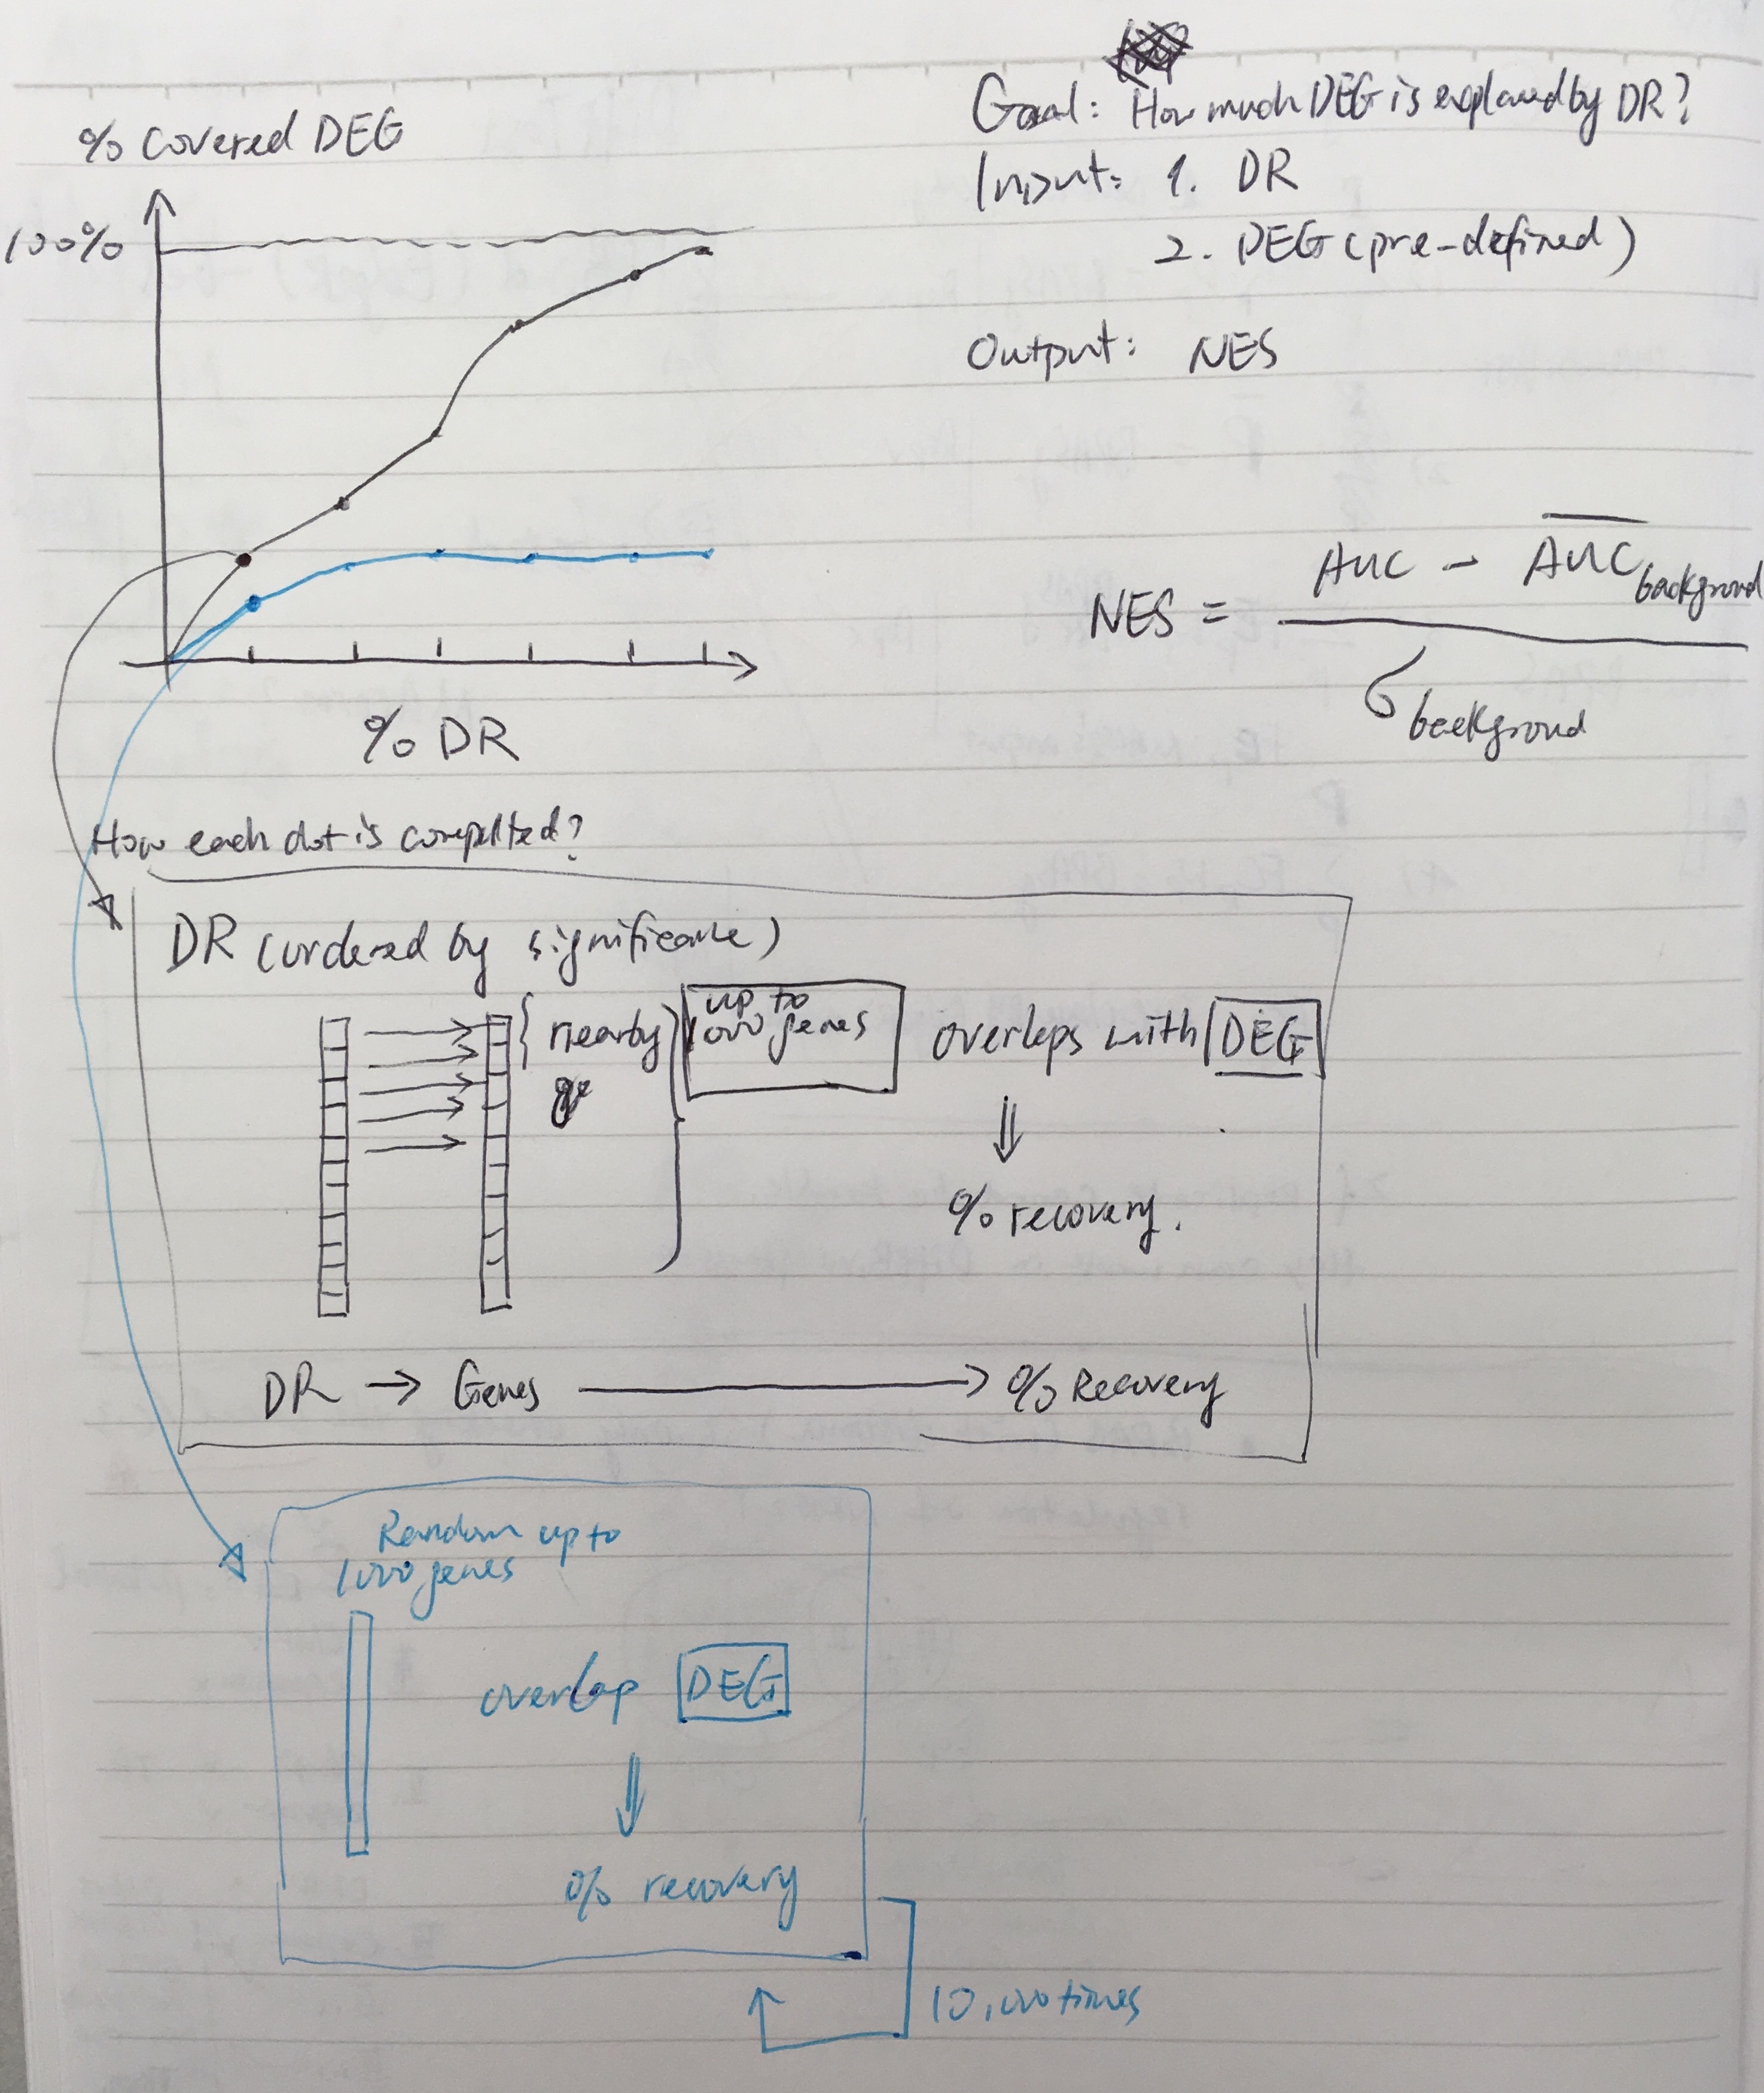 % Covered DEG
100%
% DR
Goal: How much DEG is explained by DR?
Input: 1. DR
2. DEG (pre-defined)
Output: NES
NES = AUC - AUC backgrond
σ backgrond
How each dot is computed?
DR (ordered by significance)
nearby
ge
up to
1000 genes
overlaps with DEG
% recovery.
DR → Genes → % Recovery
Random up to
1000 genes
overlap DEG
% recovery
10,000 times